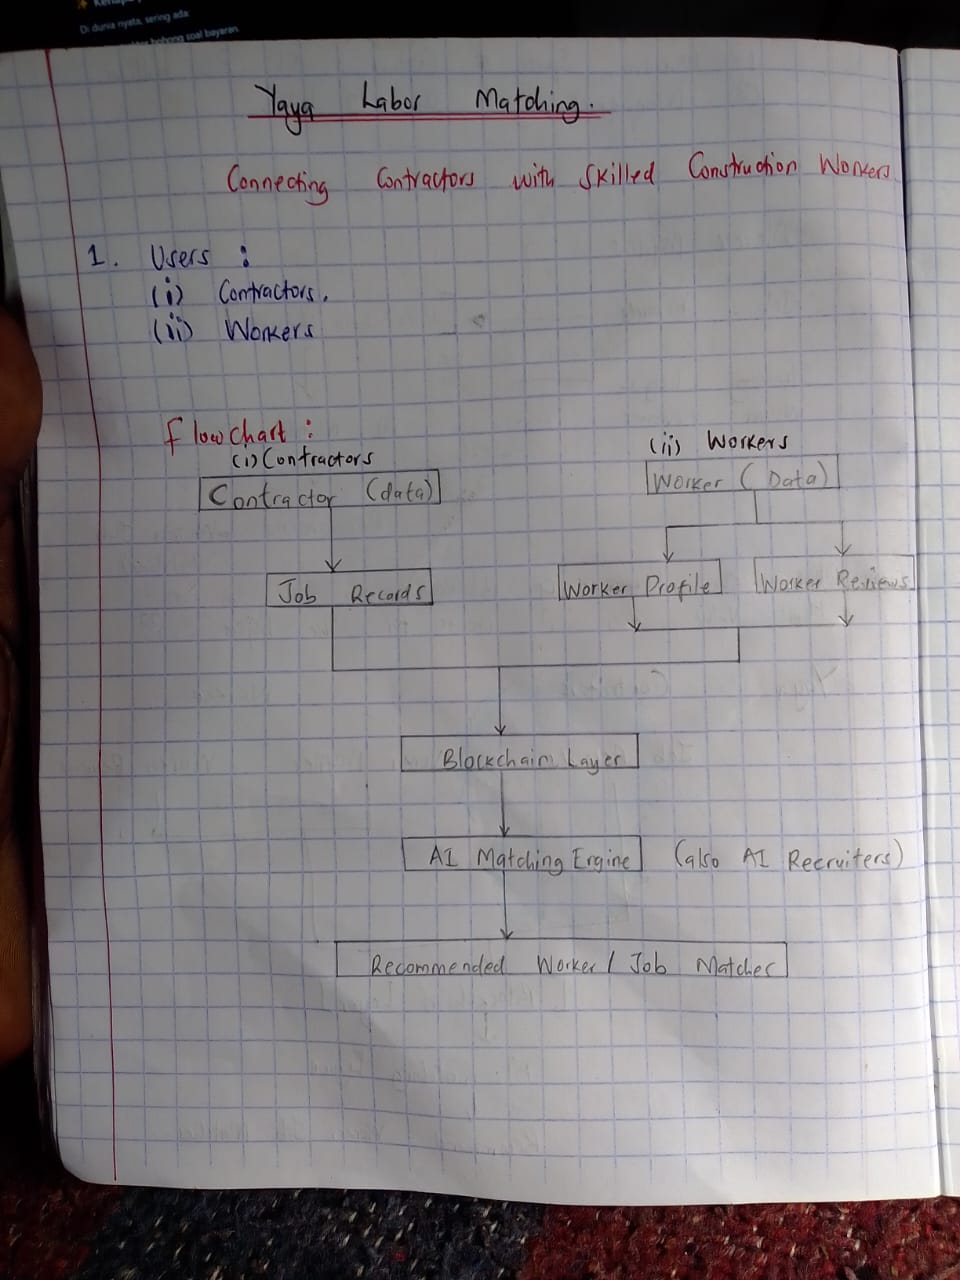 Di dunia nyata, sering ada:
bohong soal bayaran
Yaya Labor Matching.
Connecting Contractors with Skilled Construction Workers
1. Users :
(i) Contractors.
(ii) Workers
Flowchart :
(i) Contractors
(ii) Workers
Contractor (data)
Worker (Data)
Job Records
Worker Profile
Worker Reviews
Blockchain Layer
AI Matching Engine (also AI Recruiters)
Recommended Worker / Job Matches